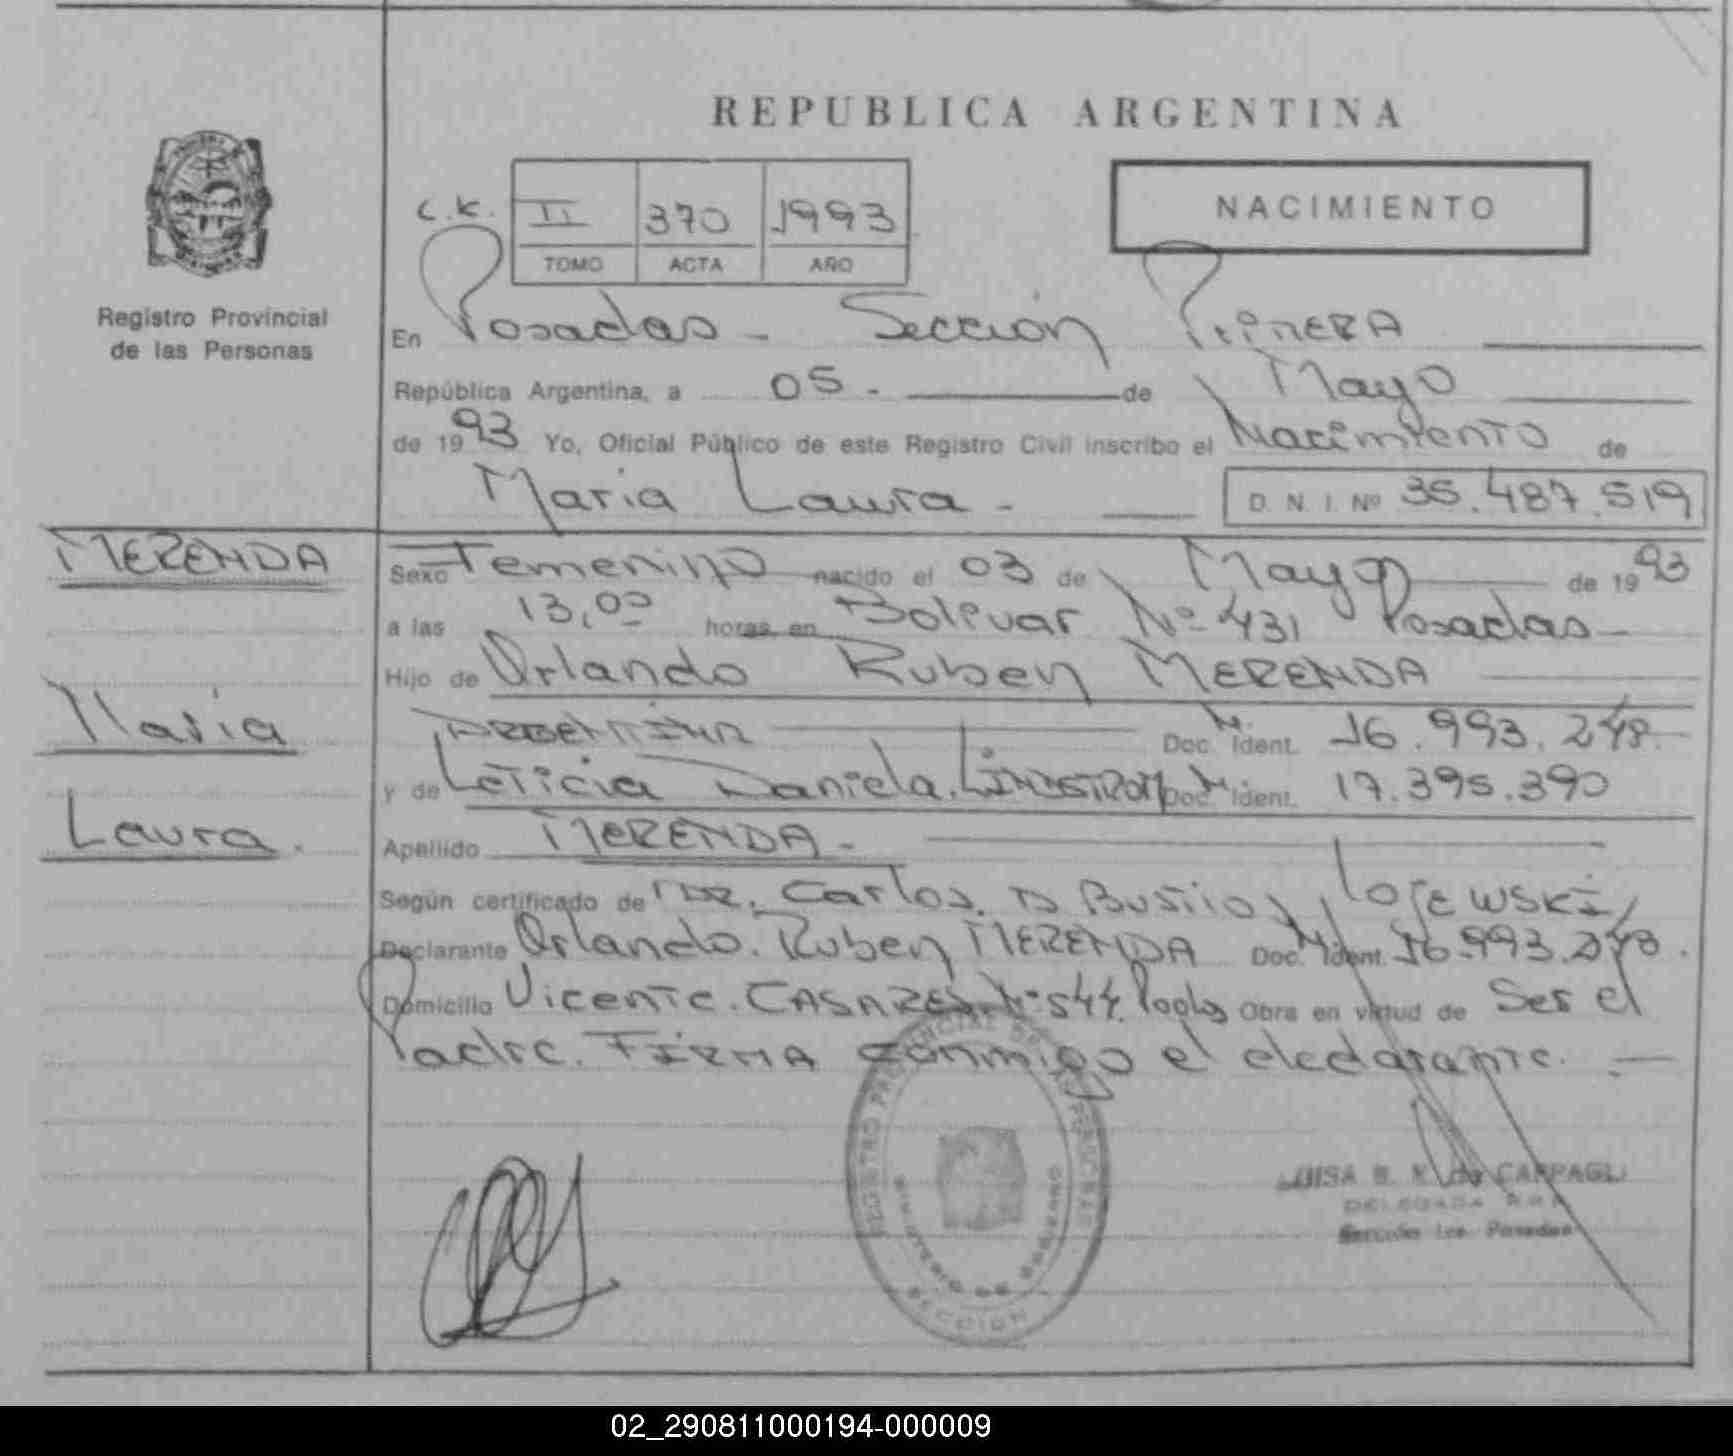 REPUBLICA ARGENTINA
NACIMIENTO
C.K. II 370 1993
TOMO ACTA AÑO
Registro Provincial
de las Personas
En Posadas - Sección Primera
República Argentina, a 05 - de Mayo
de 1993 Yo, Oficial Público de este Registro Civil inscribo el Nacimiento de
Maria Laura - D. N. I. Nº 35.487.519
MERENDA
Maria
Laura.
Sexo Femenino nacido el 03 de Mayo de 1993
a las 13,00 horas en Bolivar Nº 431 Posadas-
Hijo de Orlando Ruben MERENDA
ARGENTINA Doc. Ident. 16.993.248
y de Leticia Daniela. LINDSTROM Doc. Ident. 17.395.390
Apellido MERENDA -
Según certificado de Dr. Carlos
Declarante Orlando. Ruben MERENDA Doc. Ident. 16.993.248.
Domicilio Vicente. CASARES Nº 544. Obra en virtud de Ser el
Padre. FIRMA conmigo el declarante. -
REGISTRO PROVINCIAL DE LAS PERSONAS
MINISTERIO DE GOBIERNO
SECCION
LUISA B. K. de CARPAGLI
DELEGADA
Sección 1ra. Posadas
02_290811000194-000009